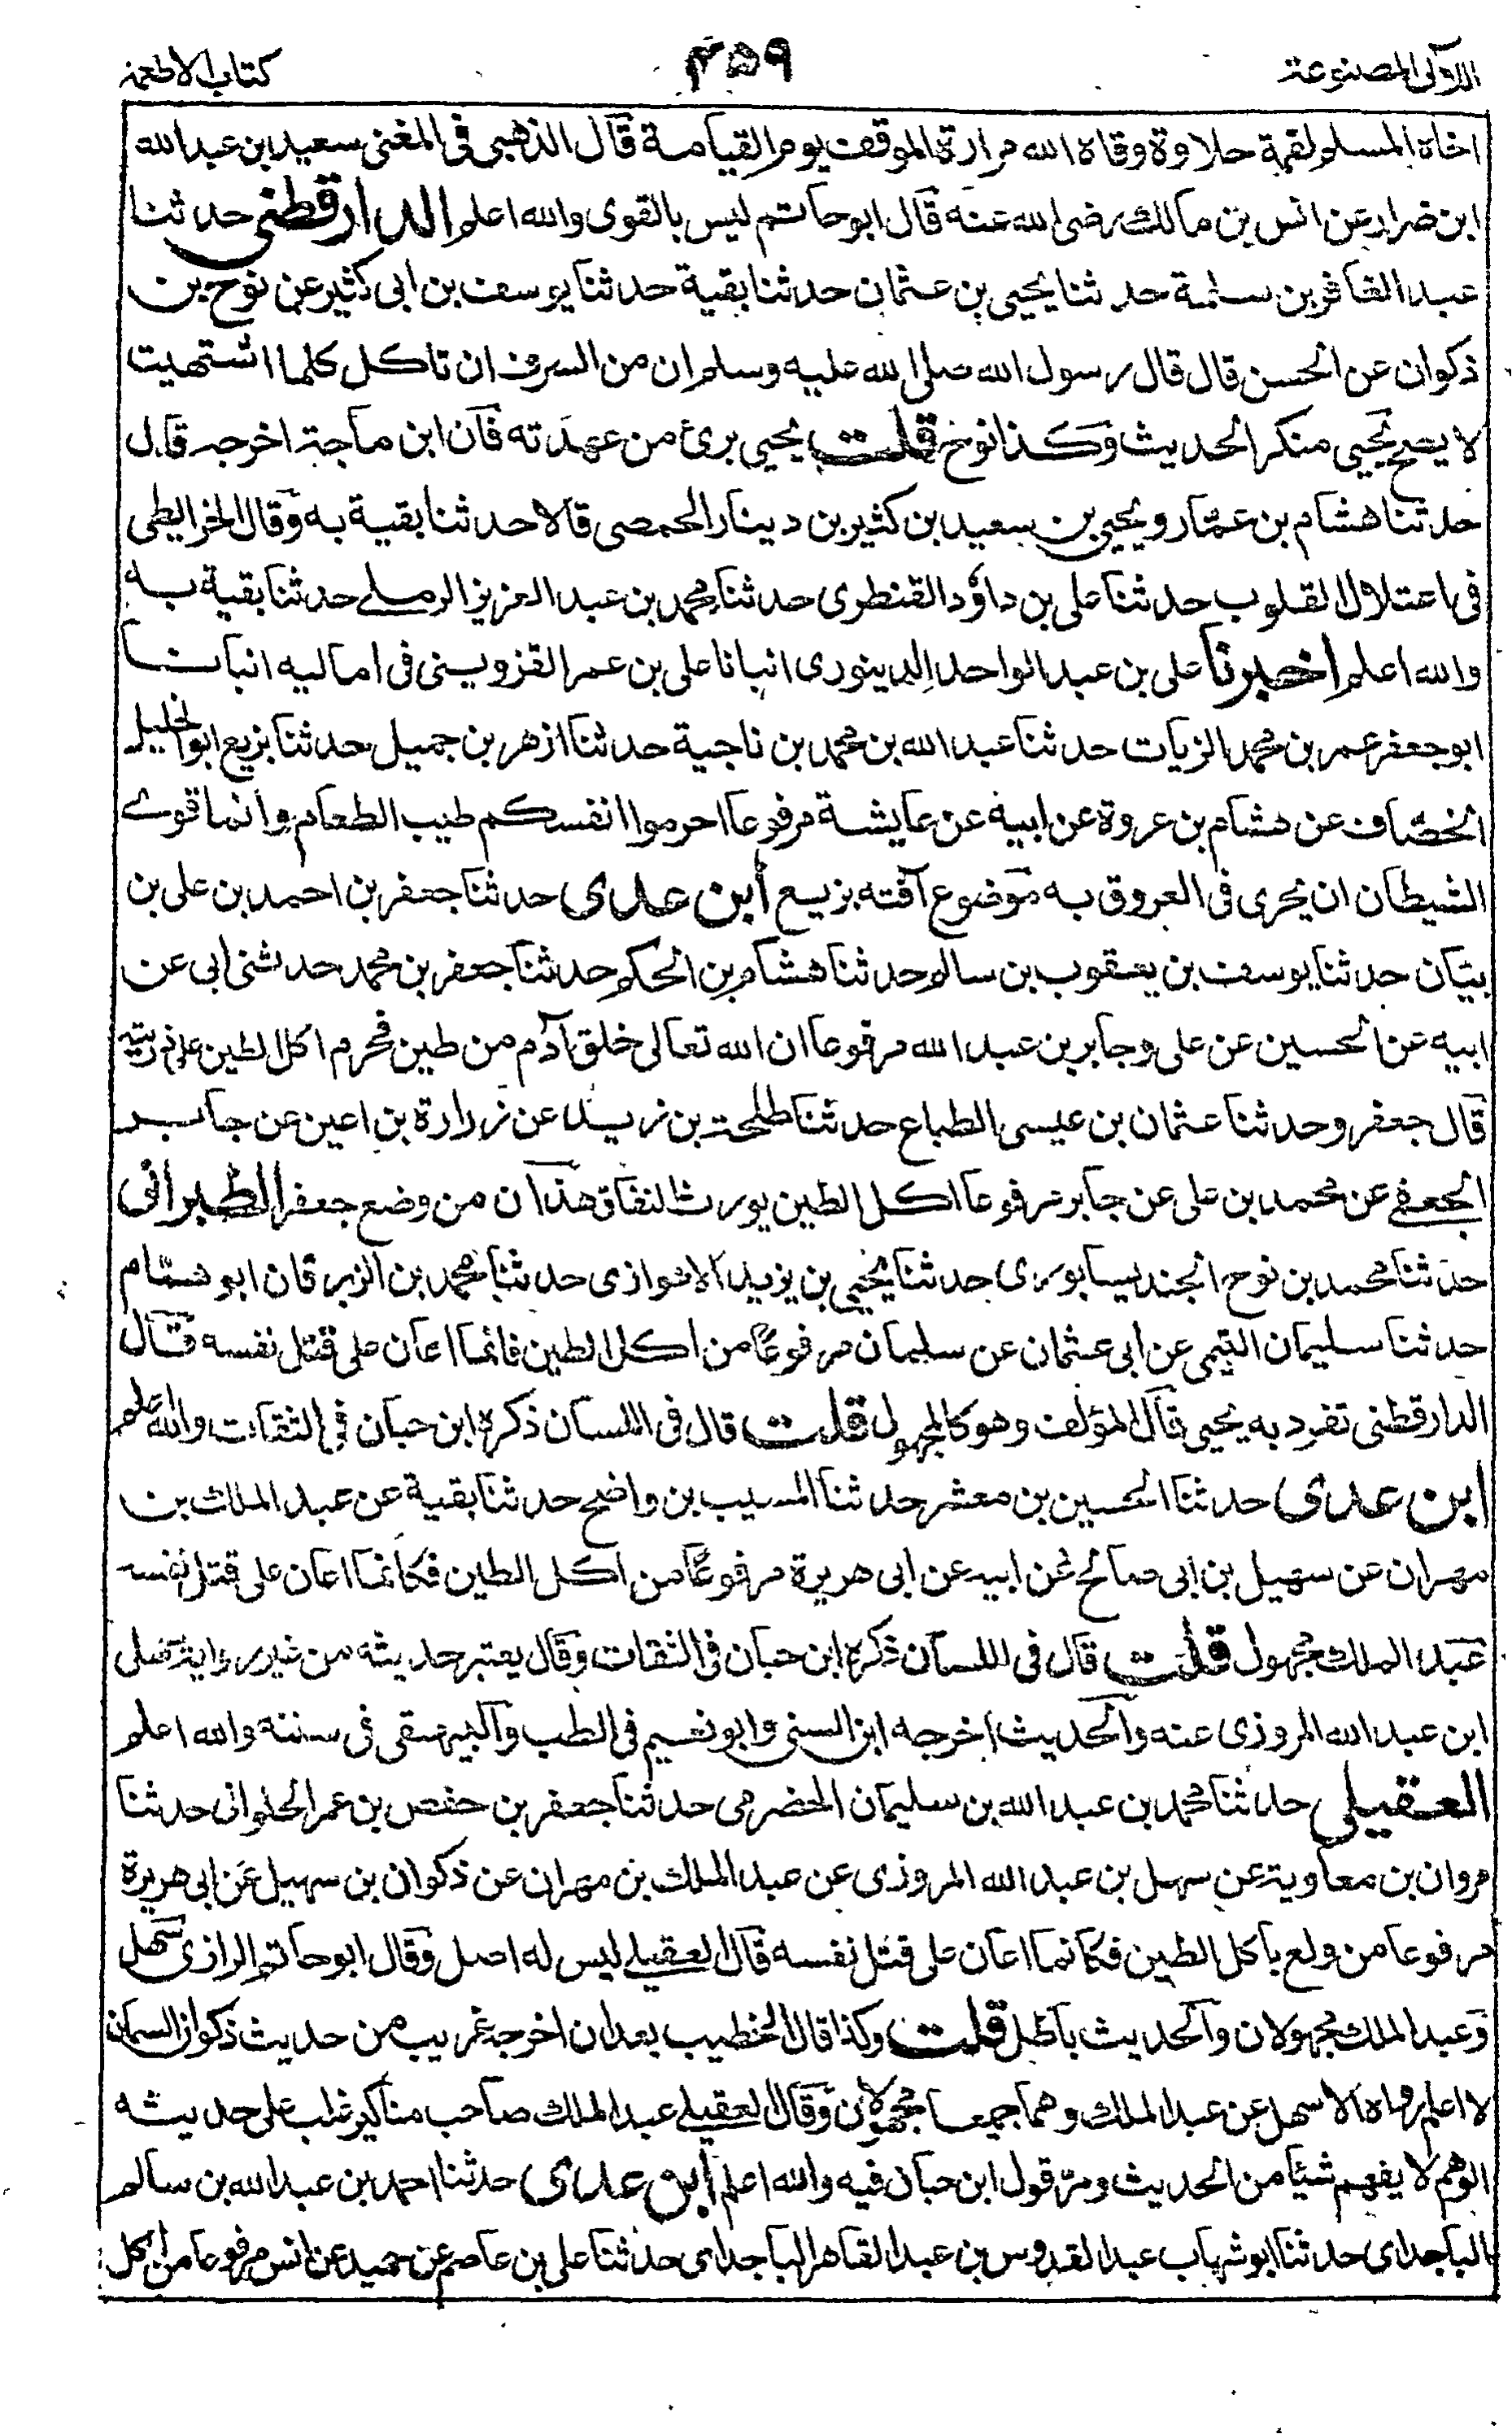 اللآلى المصنوعة
۴۵۹
كتاب الاطعمة
اخاه المسلم لقمة حلاوة وقاه الله مرارة الموقف يوم القيامة قال الذهبى فى المغنى سعيد بن عبد الله
ابن ضرار عن انس بن مالك رضى الله عنه قال ابو حاتم ليس بالقوى والله اعلم الدارقطنى حدثنا
عبد الغافر بن سلمة حدثنا يحيى بن عثمان حدثنا بقية حدثنا يوسف بن ابى كثير عن نوح بن
ذكوان عن الحسن قال قال رسول الله صلى الله عليه وسلم ان من السرف ان تاكل كلما اشتهيت
لا يصح يحيى منكر الحديث وكذا نوح قلت يحيى برئ من عهدته فان ابن ماجة اخرجه قال
حدثنا هشام بن عمّار ويحيى بن سعيد بن كثير بن دينار الحمصى قالا حدثنا بقية به وقال الخرايطى
فى اعتلال القلوب حدثنا على بن داؤد القنطرى حدثنا محمد بن عبد العزيز الرملے حدثنا بقية به
والله اعلم اخبرنا على بن عبد الواحد الدينورى انبانا على بن عمر القزوينى فى اماليه انبانا
ابو جعفر عمر بن محمد الزيات حدثنا عبد الله بن محمد بن ناجية حدثنا ازهر بن جميل حدثنا بزيع ابو الخليل
الخصّاف عن هشام بن عروة عن ابيه عن عايشة مرفوعا احرموا انفسكم طيب الطعام وانما قوے
الشيطان ان يجرى فى العروق به موضوع آفته بزيع ابن عدى حدثنا جعفر بن احمد بن على بن
بيّان حدثنا يوسف بن يعقوب بن سالم حدثنا هشام بن الحكم حدثنا جعفر بن محمد حدثنى ابى عن
ابيه عن الحسين عن على وجابر بن عبد الله مرفوعا ان الله تعالى خلق آدم من طين فحرم اكل الطين على ذريته
قال جعفر وحدثنا عثمان بن عيسى الطباع حدثنا طلحة بن زيد عن زرارة بن اعين عن جابر
الجعفے عن محمد بن على عن جابر مرفوعا اكل الطين يورث النفاق هذان من وضع جعفر الطبرانى
حدثنا محمد بن نوح الجنديسابورى حدثنا يحيى بن يزيد الاهوازى حدثنا محمد بن الزبرقان ابو همّام
حدثنا سليمان التيمى عن ابى عثمان عن سليمان مرفوعًا من اكل الطين فانما اعان على قتل نفسه قال
الدارقطنى تفرد به يحيى قال المؤلف وهو كالمجهول قلت قال فى اللسان ذكره ابن حبان فى الثقات والله اعلم
ابن عدى حدثنا الحسين بن معشر حدثنا المسيب بن واضح حدثنا بقية عن عبد الملك بن
مهران عن سهيل بن ابى صالح عن ابيه عن ابى هريرة مرفوعًا من اكل الطين فكانما اعان على قتل نفسه
عبد الملك مجهول قلت قال فى اللسان ذكره ابن حبان فى الثقات وقال يعتبر حديثه من غير رواية سهل
ابن عبد الله المروزى عنه والحديث اخرجه ابن السنى وابو نعيم فى الطب والبيهقى فى سننه والله اعلم
العقيلى حدثنا محمد بن عبد الله بن سليمان الحضرمى حدثنا جعفر بن حفص بن عمر الحلوانى حدثنا
مروان بن معاوية عن سهل بن عبد الله المروزى عن عبد الملك بن مهران عن ذكوان بن سهيل عن ابى هريرة
مرفوعا من ولع باكل الطين فكانما اعان على قتل نفسه قال العقيلے ليس له اصل وقال ابو حاتم الرازى سهل
وعبد الملك مجهولان والحديث باطل قلت وكذا قال الخطيب بعد ان اخرجه غريب من حديث ذكوان السمان
لا اعلم رواه الا سهل عن عبد الملك وهما جميعا مجهولان وقال العقيلے عبد الملك صاحب مناكير غلب على حديثه
الوهم لا يفهم شيئا من الحديث ومرّ قول ابن حبان فيه والله اعلم ابن عدى حدثنا احمد بن عبد الله بن سالم
الباجداى حدثنا ابو شهاب عبد القدوس بن عبد القاهر الباجداى حدثنا على بن عاصم عن حميد عن انس مرفوعا من اكل